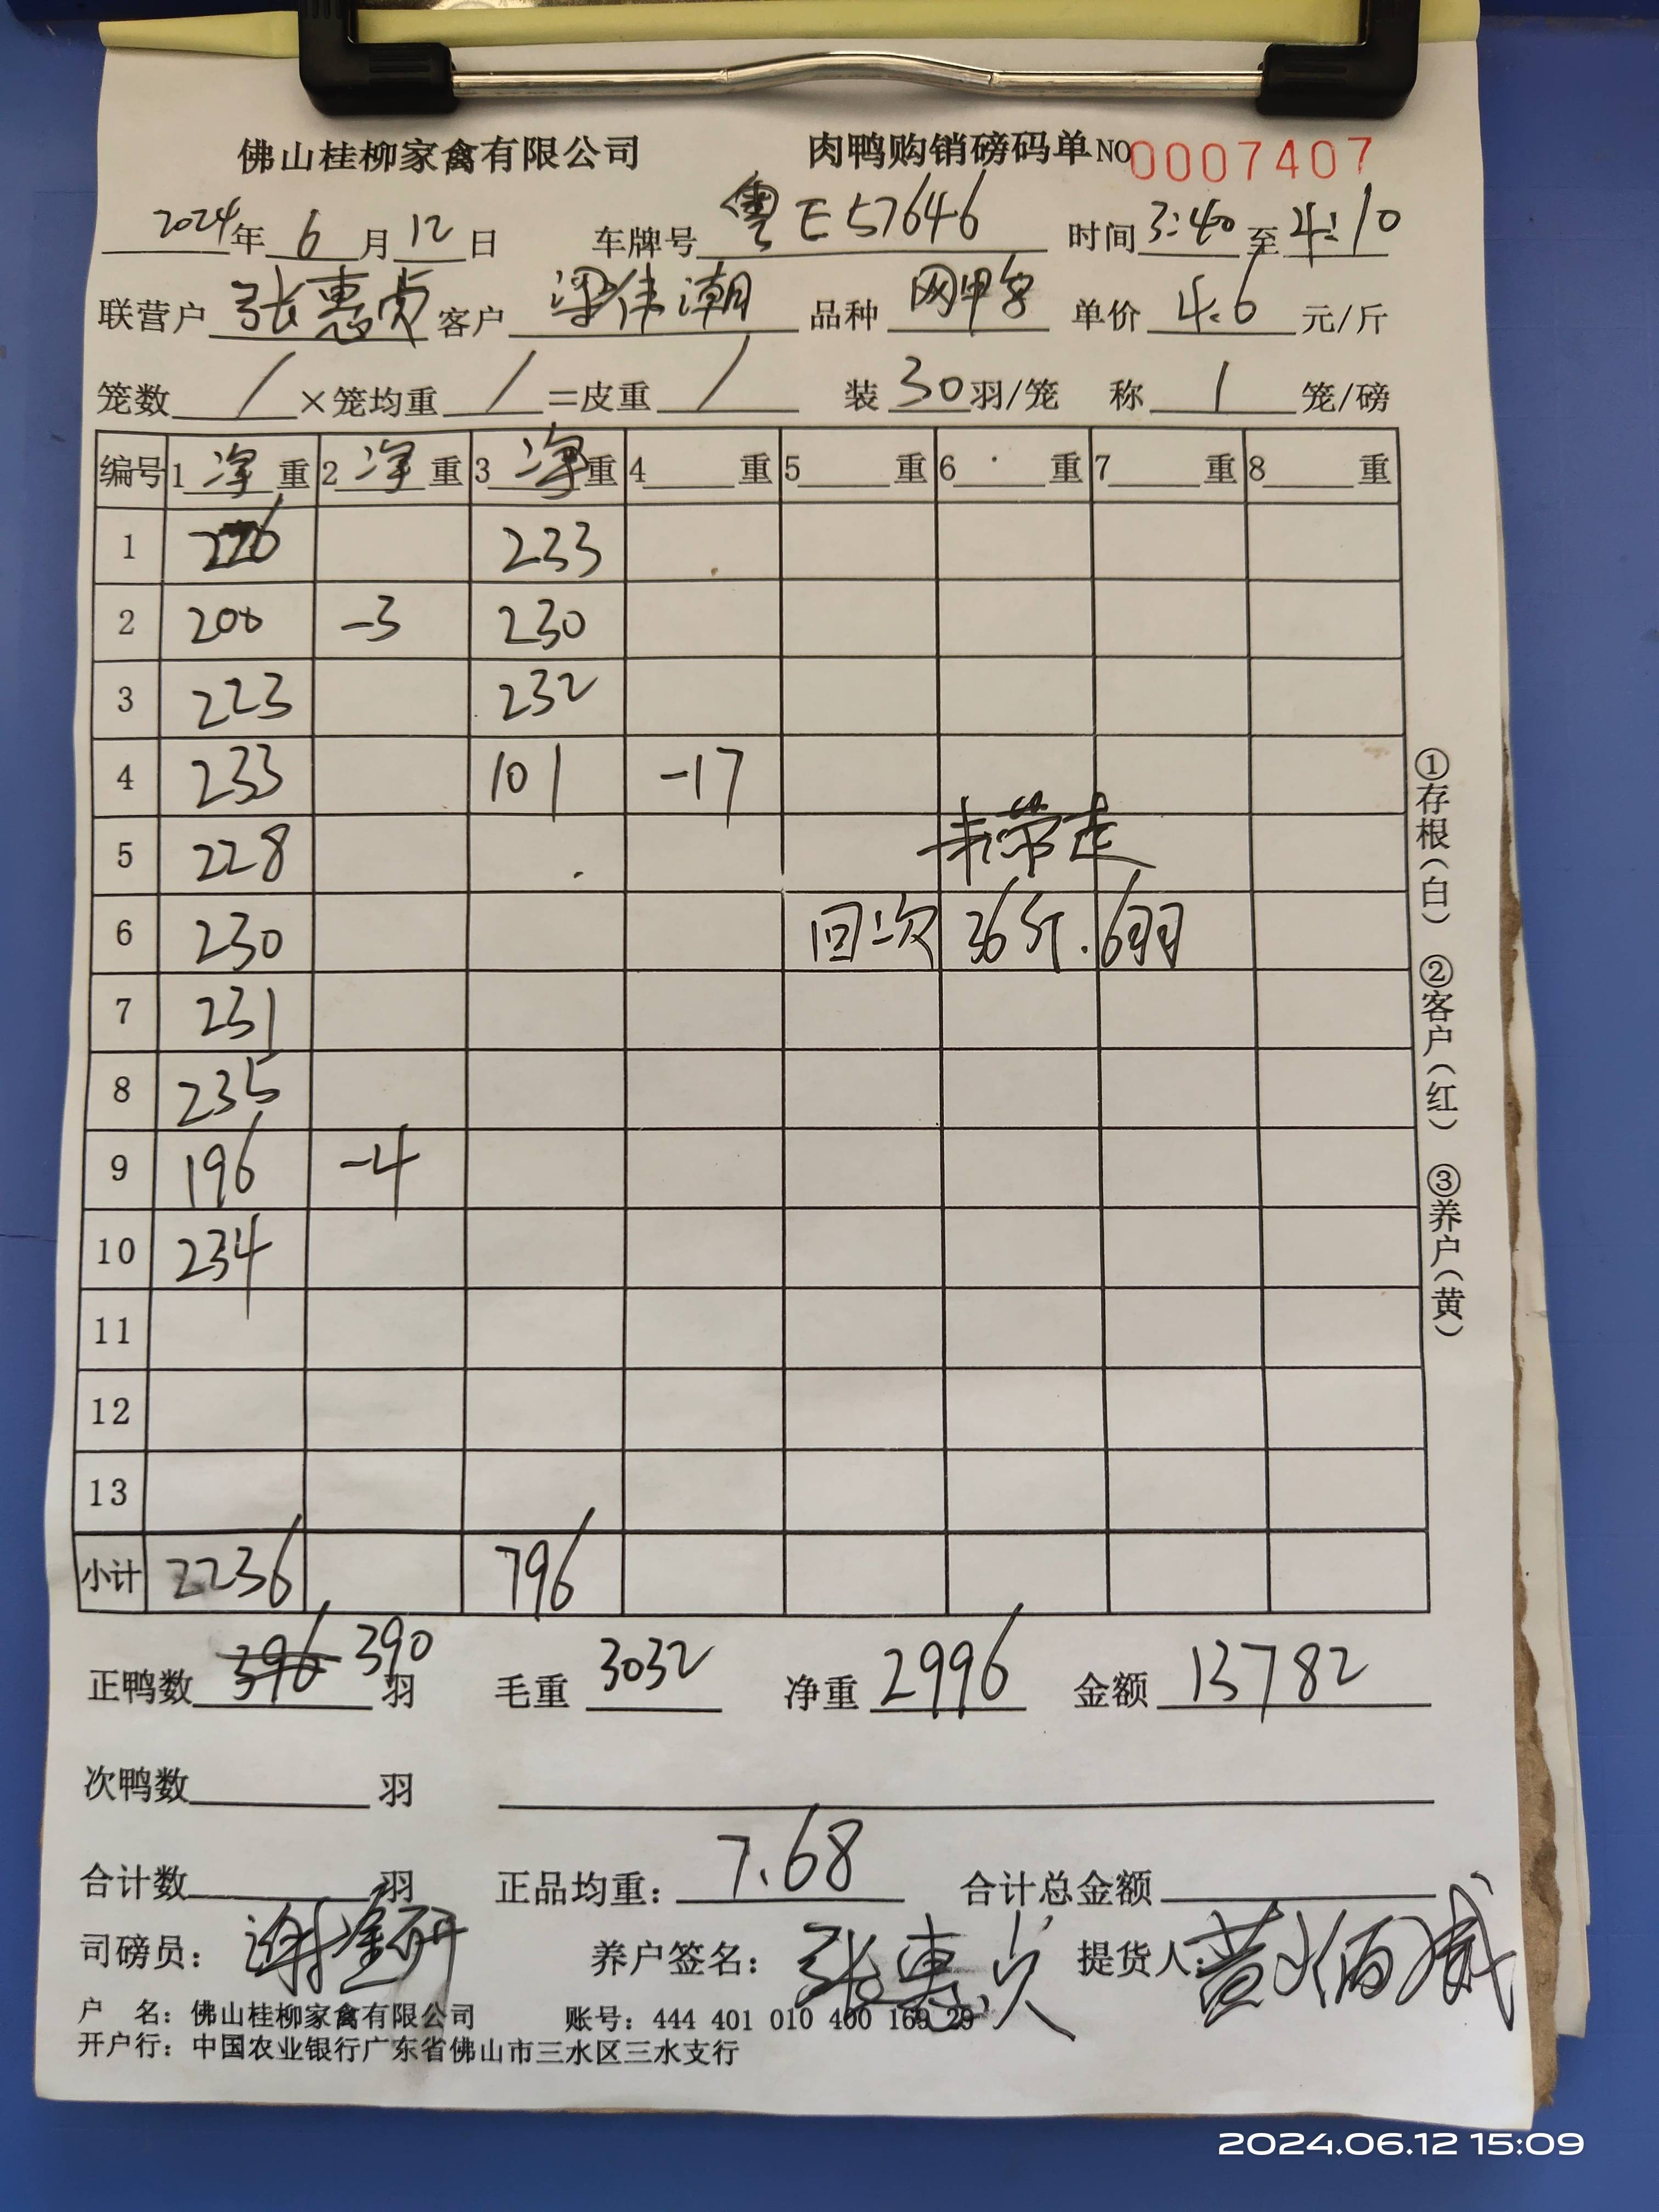 佛山桂柳家禽有限公司 肉鸭购销磅码单 NO 0007407
2024年 6月12日 车牌号 粤E57646 时间 3:40 至 4:10
联营户 张惠贞 客户 梁伟潮 品种 单价 4.6 元/斤
笼数 / ×笼均重 / =皮重 / 装 30 羽/笼 称 1 笼/磅
编号 1 净 重 2 净 重 3 净 重 4 重 5 重 6 重 7 重 8 重
1 226 233
2 200 -3 230
3 223 232
4 233 101 -17
5 228 未带走
6 230 回次 36斤.6羽
7 231
8 235
9 196 -4
10 234
11
12
13
小计 2236 796
正鸭数 396 390 羽 毛重 3032 净重 2996 金额 13782
次鸭数 羽
合计数 羽 正品均重: 7.68 合计总金额
司磅员: 养户签名: 张惠贞 提货人:
户 名: 佛山桂柳家禽有限公司 账号: 444 401 010 400 169 29
开户行: 中国农业银行广东省佛山市三水区三水支行
①存根(白) ②客户(红) ③养户(黄)
2024.06.12 15:09